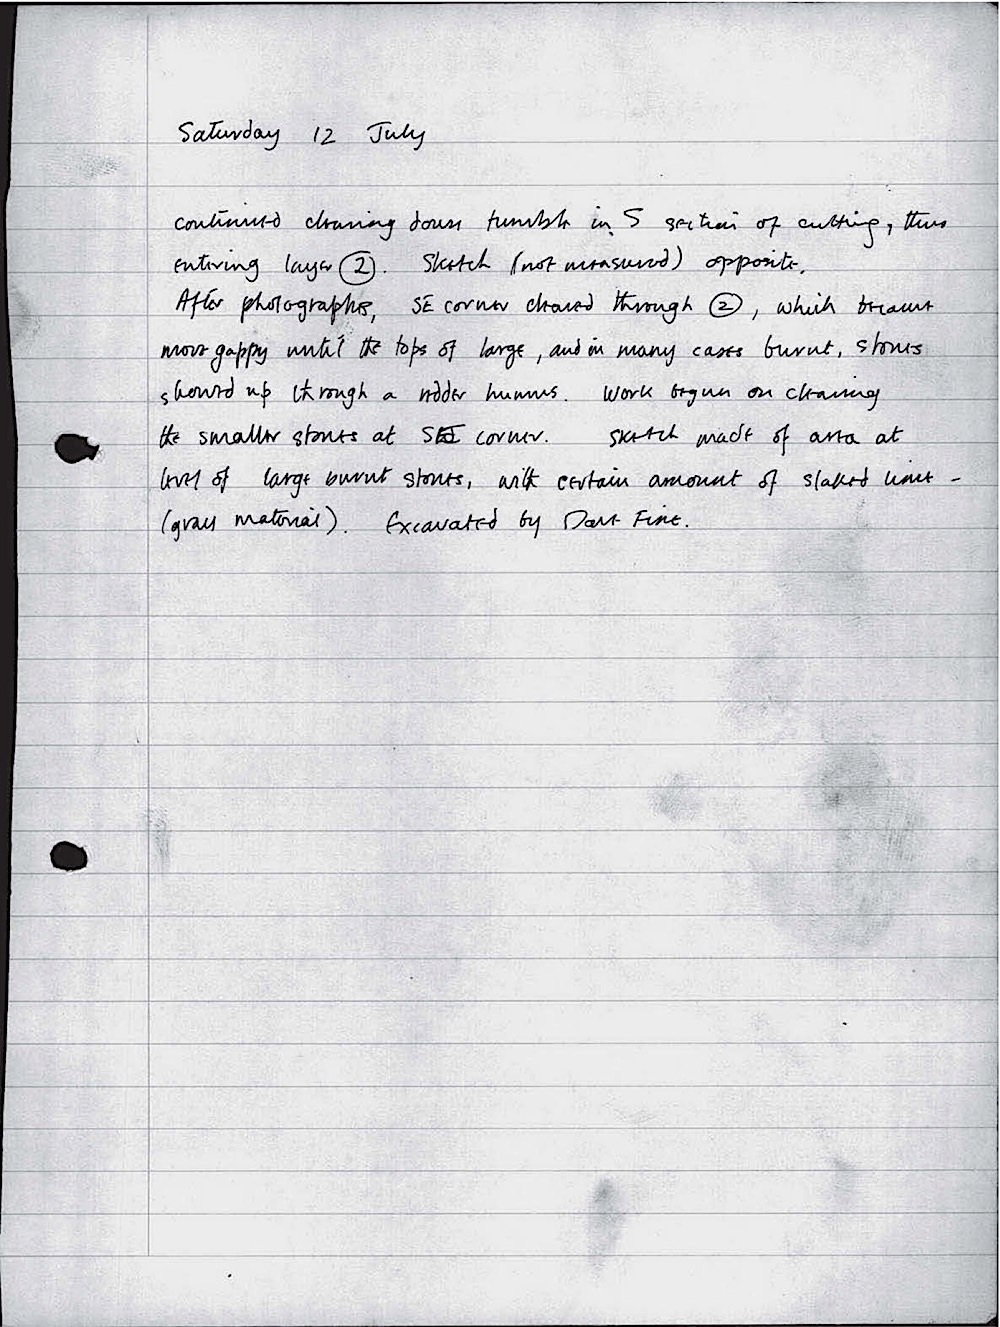 Saturday 12 July
continued cleaning down tumble in S section of cutting, thus
entering layer ②. Sketch (not measured) opposite.
After photographs, SE corner cleared through ②, which became
more gappy until the tops of large, and in many cases burnt, stones
showed up through a redder humus. Work begun on cleaning
the smaller stones at SE corner. Sketch made of area at
level of large burnt stones, with certain amount of slaked lime -
(gray material). Excavated by Dave Fine.